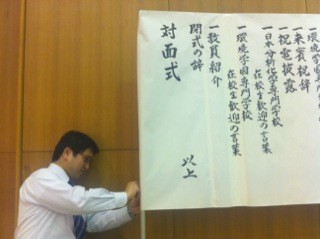 一環境学園専門学校
一来賓祝辞
一祝電披露
一日本分析化学専門学校
在校生歓迎の言葉
一環境学園専門学校
在校生歓迎の言葉
一教員紹介
閉式の辞
対面式
以上